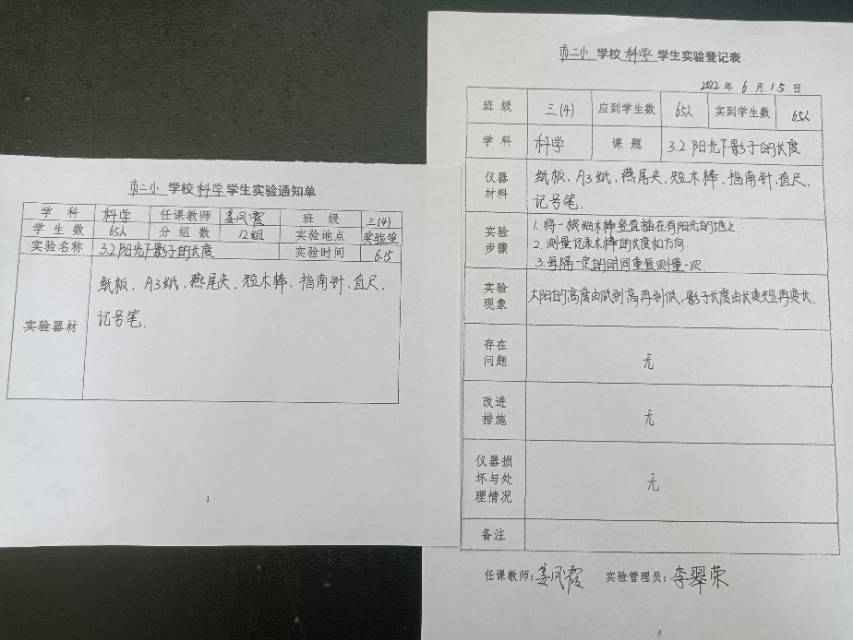 市二小 学校 科学 学生实验通知单
学 科 科学 任课教师 姜凤霞 班 级 三(4)
学 生 数 65人 分 组 数 12组 实验地点 实验室
实验名称 3.2阳光下影子的长度 实验时间 6.15
实验器材
纸板、A3纸、燕尾夹、短木棒、指南针、直尺、
记号笔.
1
市二小 学校 科学 学生实验登记表
2022 年 6 月 15 日
班 级 三(4) 应到学生数 65人 实到学生数 65人
学 科 科学 课 题 3.2阳光下影子的长度
仪器材料
纸板、A3纸、燕尾夹、短木棒、指南针、直尺、
记号笔.
实验步骤
1. 将一根细木棒竖直插在有阳光的地上.
2. 测量记录木棒的长度和方向.
3. 每隔一定的时间重复测量一次.
实验现象
太阳的高度由低到高再到低、影子长度由长变短再变长.
存在问题 无
改进措施 无
仪器损坏与处理情况 无
备注
任课教师: 姜凤霞 实验管理员: 李翠荣